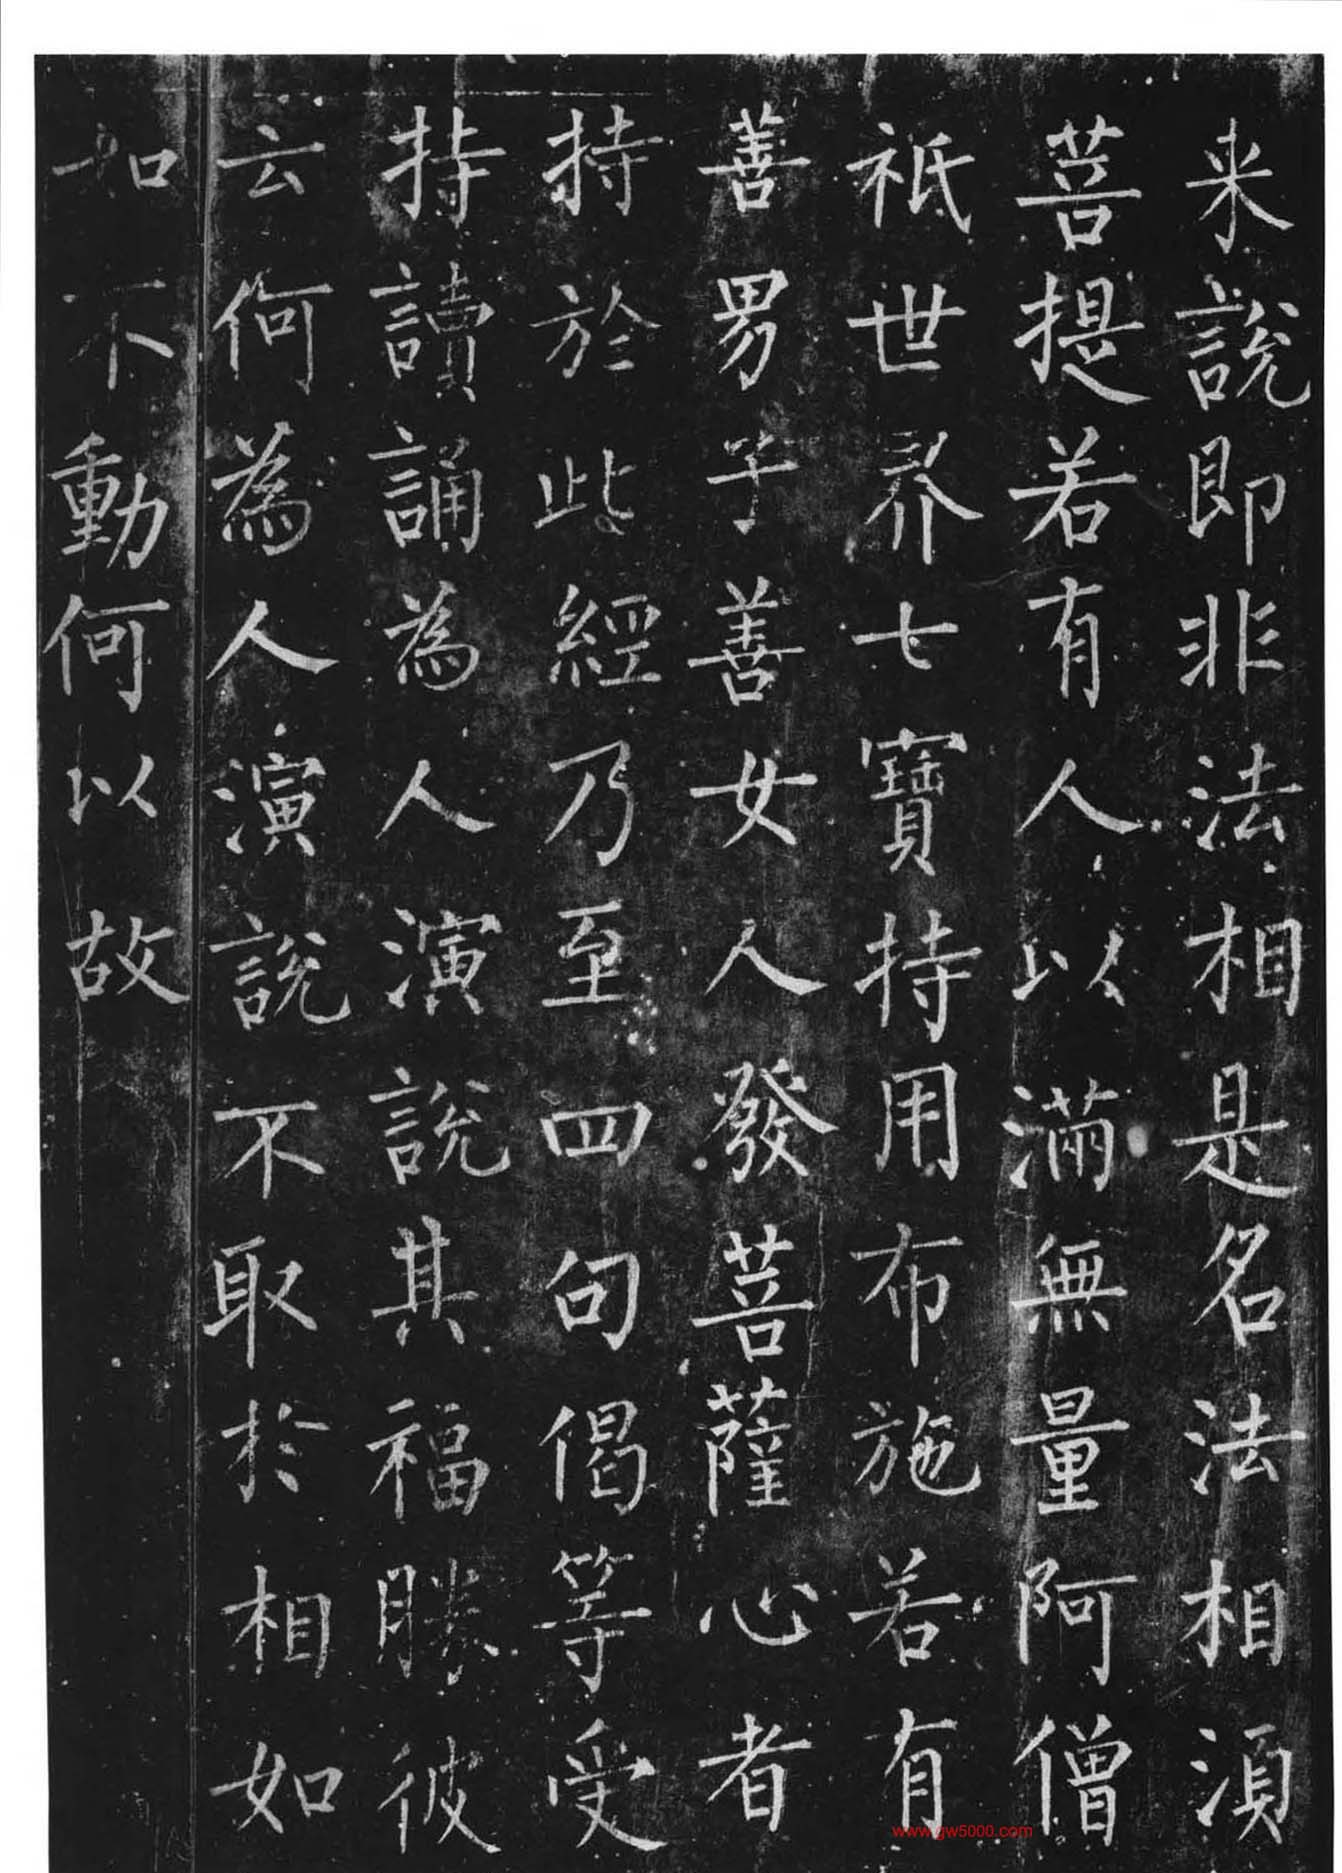 来說即非法相是名法相須
菩提若有人以滿無量阿僧
祇世界七寶持用布施若有
善男子善女人發菩薩心者
持於此經乃至四句偈等受
持讀誦為人演說其福勝彼
云何為人演說不取於相如
如不動何以故
www.gw5000.com